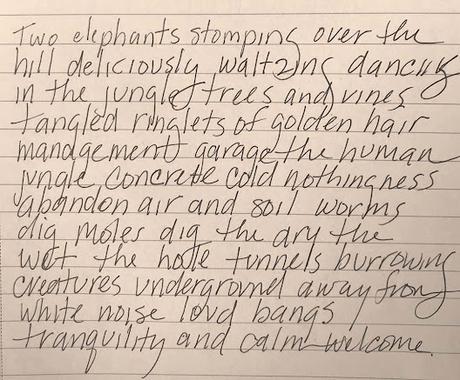 Two elephants stomping over the
hill deliciously waltzing dancing
in the jungle trees and vines
tangled ringlets of golden hair
management garage the human
jungle concrete cold nothingness
abandon air and soil worms
dig moles dig the dry the
wet the hole tunnels burrowing
creatures underground away from
white noise loud bangs
tranquility and calm welcome.